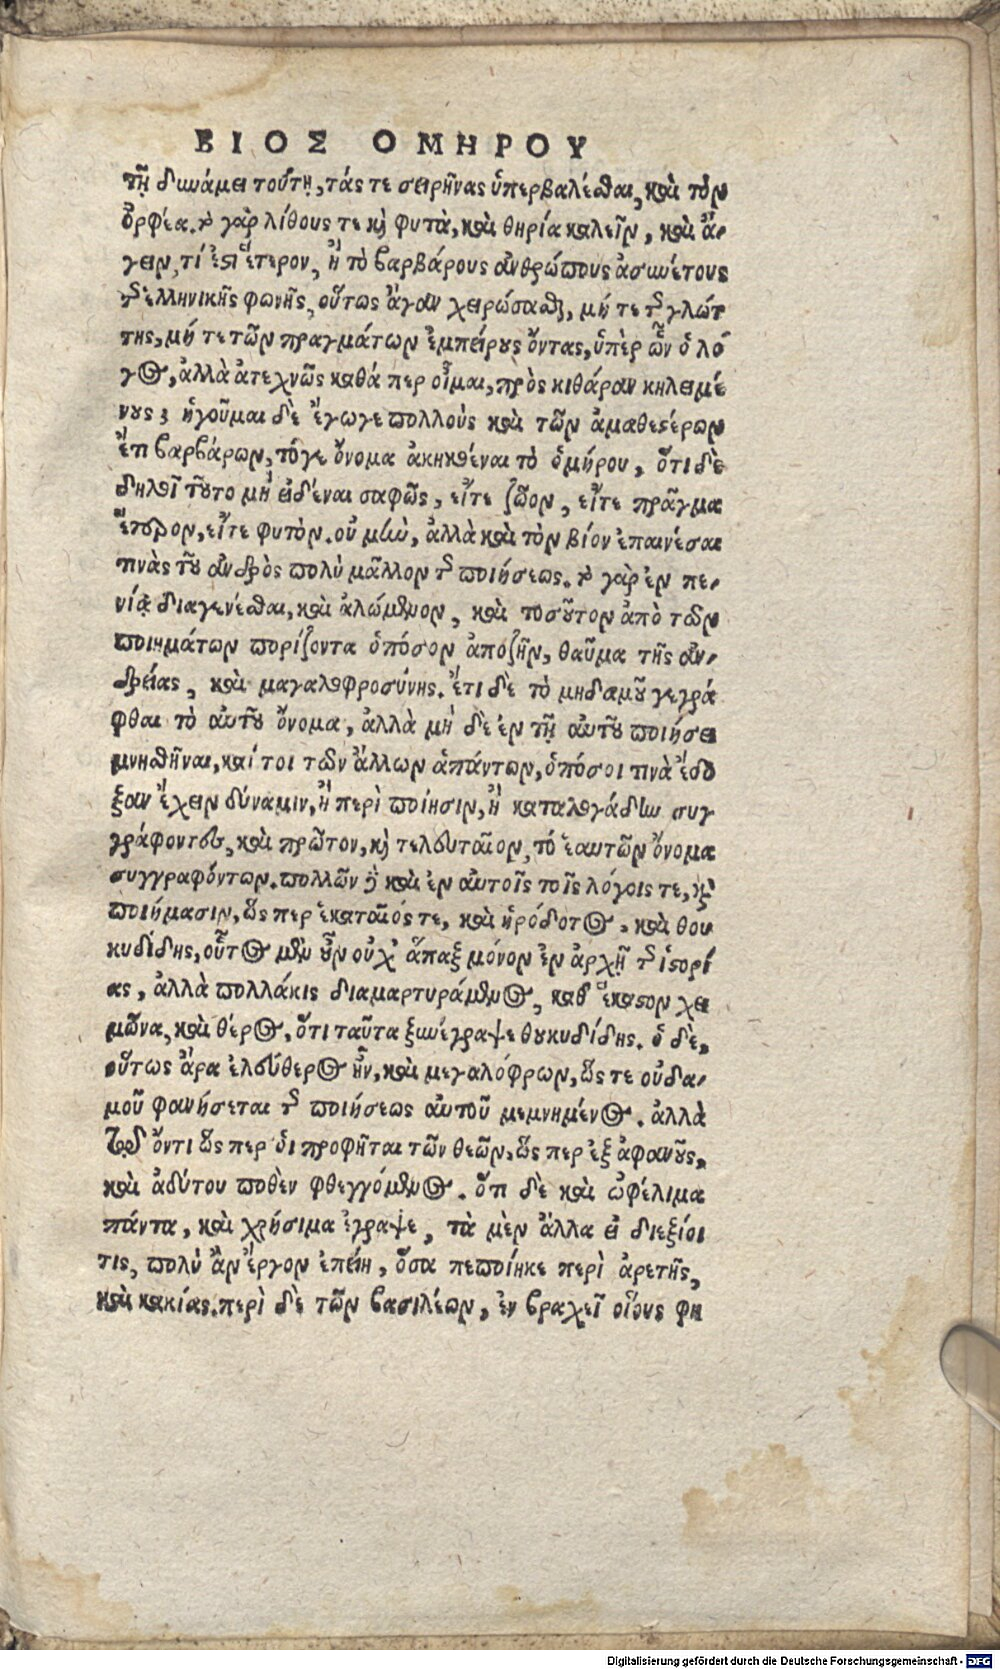 ΒΙΟΣ ΟΜΗΡΟΥ
τῇ δυνάμει τούτῃ, τάς τε σειρῆνας ὑπερβαλέσθαι, καὶ τὸν
ὀρφέα. τὸ γὰρ λίθους τε καὶ φυτὰ, καὶ θηρία καλεῖν, καὶ ἄ-
γειν, τί ἐστὶ ἕτερον, ἢ τὸ βαρβάρους ἀνθρώπους ἀσυνέτους
τῆς ἑλληνικῆς φωνῆς, οὕτως ἄγαν χειρώσασθαι, μή τε τῆς γλώτ
της, μή τε τῶν πραγμάτων ἐμπείρους ὄντας, ὑπὲρ ὧν ὁ λό
γος, ἀλλὰ ἀτεχνῶς καθά περ οἶμαι, πρὸς κιθάραν κηλεμέ
νους; ἡγοῦμαι δὲ ἔγωγε πολλοὺς καὶ τῶν ἀμαθεστέρων
ἔτι βαρβάρων, τόγε ὄνομα ἀκηκοέναι τὸ ὁμήρου, ὅτι δὲ
δηλοῖ τοῦτο μὴ εἰδέναι σαφῶς, εἴτε ζῶον, εἴτε πρᾶγμα
ἕτερον, εἴτε φυτόν. οὐ μὴν, ἀλλὰ καὶ τὸν βίον ἐπαινέσαι
τινὰς τοῦ ἀνδρὸς πολὺ μᾶλλον τῆς ποιήσεως. τὸ γὰρ ἐν πε-
νίᾳ διαγενέσθαι, καὶ ἀλώμενον, καὶ τοσοῦτον ἀπὸ τῶν
ποιημάτων πορίζοντα ὁπόσον ἀποζῆν, θαῦμα τῆς ἀν-
δρείας, καὶ μαγαλοφροσύνης. ἔτι δὲ τὸ μηδαμοῦ γεγρά
φθαι τὸ αὐτοῦ ὄνομα, ἀλλὰ μὴ δὲ ἐν τῇ αὐτοῦ ποιήσει
μνησθῆναι, καί τοι τῶν ἄλλων ἁπάντων, ὁπόσοι τινὰ ἔδο
ξαν ἔχειν δύναμιν, ἢ περὶ ποίησιν, ἢ καταλογάδην συγ
γράφοντες, καὶ πρῶτον, καὶ τελευταῖον, τὸ ἑαυτῶν ὄνομα
συγγραφόντων. πολλῶν δὲ καὶ ἐν αὐτοῖς τοῖς λόγοις τε, καὶ
ποιήμασιν, ὥς περ ἑκαταῖός τε, καὶ ἡρόδοτος, καὶ θου
κυδίδης, οὗτος μὲν οὖν οὐχ' ἅπαξ μόνον ἐν ἀρχῇ τῆς ἱστορί
ας, ἀλλὰ πολλάκις διαμαρτυράμενος, καθ' ἕκαστον χει
μῶνα, καὶ θέρος, ὅτι ταῦτα ξυνέγραψε θουκυδίδης. ὁ δὲ,
οὕτως ἄρα ἐλεύθερος ἦν, καὶ μεγαλόφρων, ὥς τε οὐδα-
μοῦ φανήσεται τῆς ποιήσεως αὐτοῦ μεμνημένος. ἀλλὰ
τῷ ὄντι ὥς περ ὁι προφῆται τῶν θεῶν, ὥς περ ἐξ ἀφανοῦς,
καὶ ἀδύτου ποθὲν φθεγγόμενος. ὅτι δὲ καὶ ὠφέλιμα
πάντα, καὶ χρήσιμα ἔγραψε, τὰ μὲν ἄλλα εἰ διεξίοι
τις, πολὺ ἂν ἔργον ἐπείη, ὅσα πεποίηκε περὶ ἀρετῆς,
καὶ κακίας. περὶ δὲ τῶν βασιλέων, ἐν βραχεῖ οἵους φη
Digitalisierung gefördert durch die Deutsche Forschungsgemeinschaft - DFG